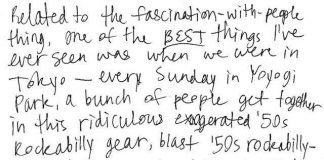 Related to the fascination-with-people
thing, one of the BEST things I've
ever seen was when we were in
Tokyo — every Sunday in Yoyogi
Park, a bunch of people get together
in this ridiculous exagerated '50s
Rockabilly gear, blast '50s rockabilly-